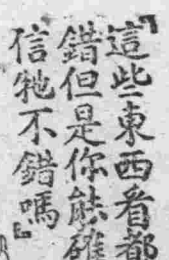 『這些東西看都
錯但是你能確
信牠不錯嗎』